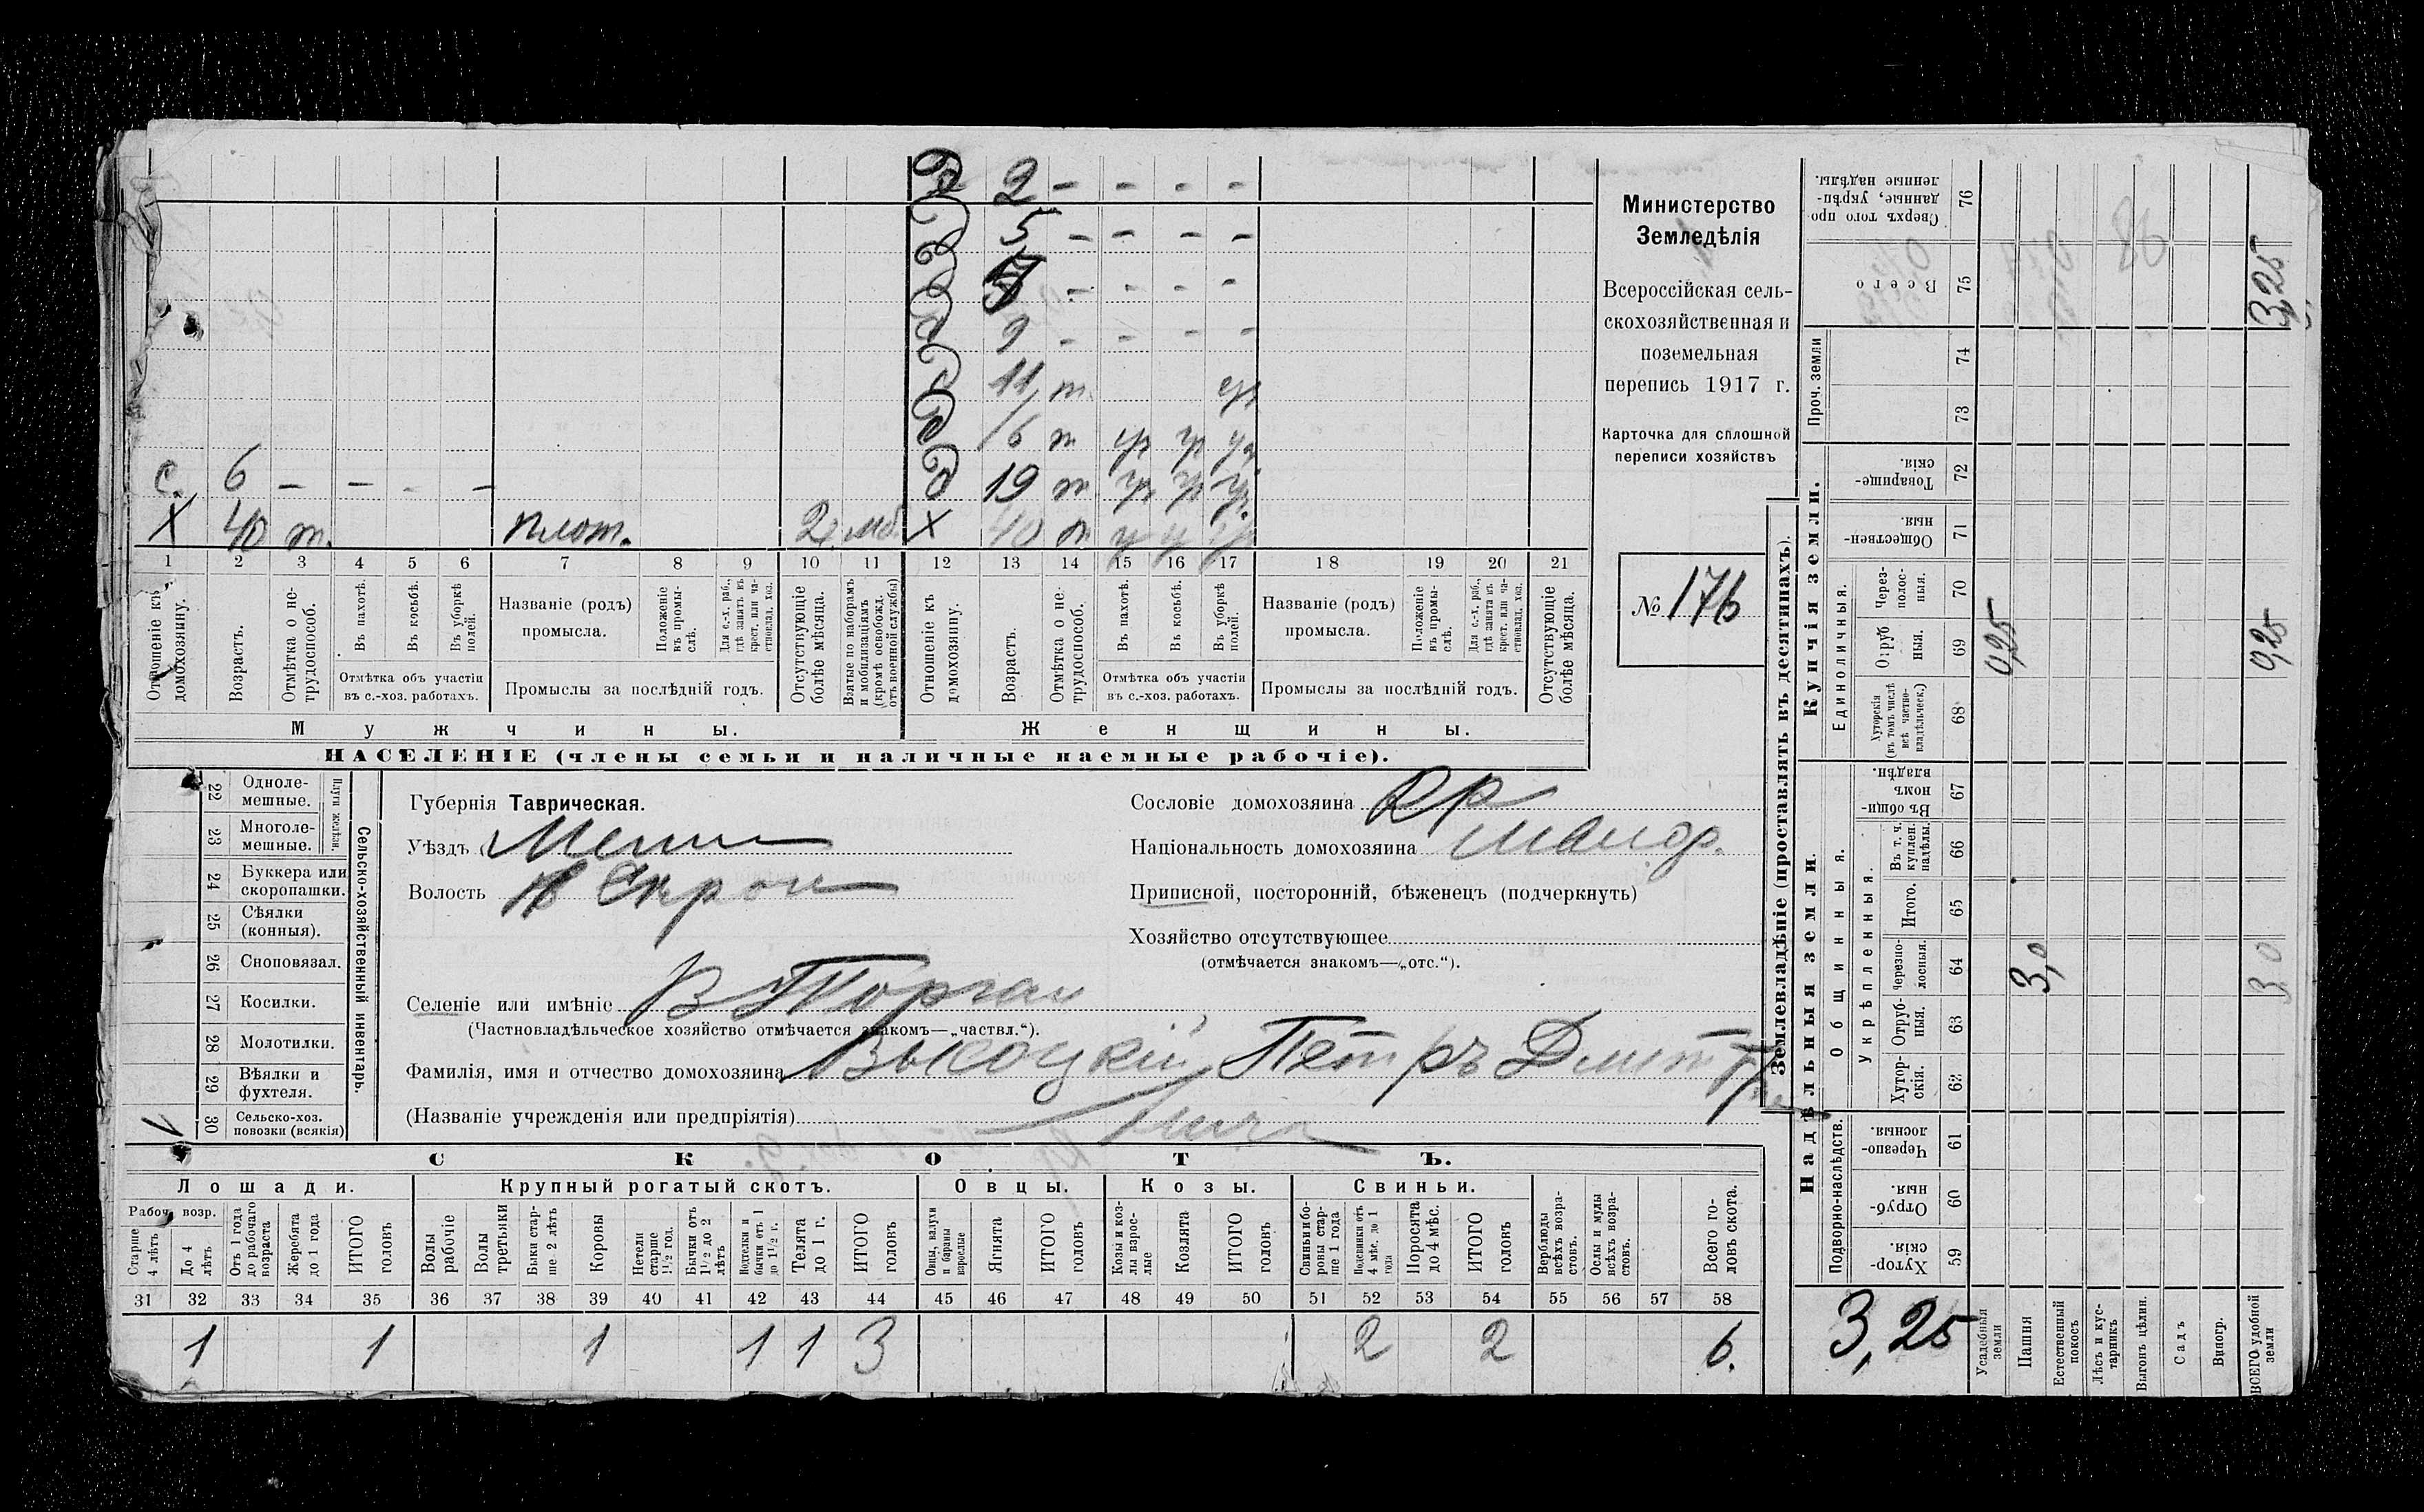 2 - - - -
5 - - - -
7 - - - -
9 - - - -
11 т
д 16 т
с. 6 - - - - д 19 т
Х 40 т. плот. 2 мб. Х 40 т
1 2 3 4 5 6 7 8 9 10 11 12 13 14 15 16 17 18 19 20 21
Отношеніе къ домохозяину.
Возрастъ.
Отмѣтка о нетрудоспособ.
Въ пахотѣ.
Въ косьбѣ.
Въ уборкѣ полей.
Отмѣтка объ участіи
въ с.-хоз. работахъ.
Названіе (родъ)
промысла.
Положеніе въ промыслѣ.
Для с.-х. раб., гдѣ занятъ въ крест. или частновлад. хоз.
Промыслы за послѣдній годъ.
Отсутствующіе болѣе мѣсяца.
Взятые по наборамъ и мобилизаціямъ (кромѣ освобожд. отъ военной службы)
Отношеніе къ домохозяину.
Возрастъ.
Отмѣтка о нетрудоспособ.
Въ пахотѣ.
Въ косьбѣ.
Въ уборкѣ полей.
Отмѣтка объ участіи
въ с.-хоз. работахъ.
Названіе (родъ)
промысла.
Положеніе въ промыслѣ.
Для с.-х. раб., гдѣ занята въ крест. или частновлад. хоз.
Промыслы за послѣдній годъ.
Отсутствующіе болѣе мѣсяца.
Мужчины. Женщины.
НАСЕЛЕНІЕ (члены семьи и наличные наемные рабочіе).
Министерство
Земледѣлія
Всероссійская сель-
скохозяйственная и
поземельная
перепись 1917 г.
Карточка для сплошной
переписи хозяйствъ
№ 176
22 Одноле-
мешные.
23 Многоле-
мешные.
Плуги желѣзн.
24 Буккера или
скоропашки.
25 Сѣялки
(конныя).
26 Сноповязал.
27 Косилки.
28 Молотилки.
29 Вѣялки и
фухтеля.
30 Сельско-хоз.
повозки (всякія)
Сельско-хозяйственный инвентарь.
Губернія Таврическая.
Уѣздъ Мелит
Волость
Селеніе или имѣніе В Торгаи
(Частновладѣльческое хозяйство отмѣчается знакомъ—„частвл.“).
Фамилія, имя и отчество домохозяина Высоцкій Петръ Дмитріе
(Названіе учрежденія или предпріятія) вичъ
Сословіе домохозяина Кр
Національность домохозяина малор.
Приписной, посторонній, бѣженецъ (подчеркнуть)
Хозяйство отсутствующее
(отмѣчается знакомъ—„отс.“).
СКОТЪ.
Лошади. Крупный рогатый скотъ. Овцы. Козы. Свиньи.
Рабоч. возр.
Старше 4 лѣтъ
До 4 лѣтъ
Отъ 1 года до рабочаго возраста
Жеребята до 1 года
ИТОГО головъ
Волы рабочіе
Волы третьяки
Быки старше 2 лѣтъ
Коровы
Нетели старше 1½ год.
Бычки отъ 1½ до 2 лѣтъ
Подтелки и бычки отъ 1 до 1½ г.
Телята до 1 г.
ИТОГО головъ
Овцы, валухи и бараны взрослые
Ягнята
ИТОГО головъ
Козы и козлы взрослые
Козлята
ИТОГО головъ
Свиньи и боровы старше 1 года
Подсвинки отъ 4 мѣс. до 1 года
Поросята до 4 мѣс.
ИТОГО головъ
Верблюды всѣхъ возрастовъ.
Ослы и мулы всѣхъ возрастовъ.
Всего головъ скота.
31 32 33 34 35 36 37 38 39 40 41 42 43 44 45 46 47 48 49 50 51 52 53 54 55 56 57 58
1 1 1 1 1 3 2 2 6.
Землевладѣніе (проставлять въ десятинахъ).
Надѣльныя земли. Купчія земли.
Подворно-наслѣдств. Общинныя. Укрѣпленныя. Единоличныя. Проч. земли
Хутор-
скія. 59
Отруб-
ныя. 60
Черезпо-
лосныя. 61
Хутор-
скія. 62
Отруб-
ныя. 63
Черезпо-
лосныя. 64
Итого. 65
Въ т. ч. куплен. надѣлы. 66
Въ общи-
номъ
владѣн. 67
Хуторскія
(въ томъ числѣ
всѣ частно-
владѣльческ.) 68
Отруб
ныя. 69
Через-
полос-
ныя. 70
Обществен-
ныя. 71
Товарище-
скія. 72
73
74
Всего 75
Сверхъ того про
данные, укрѣп-
ленные надѣлы. 76
3,25
Усадебныя земли 0,25
Пашня 3,0
Естественный покосъ
Лѣсъ и кустарникъ
Выгонъ цѣлин.
Садъ
Виногр.
ВСЕГО удобной земли 3,0 0,25 3,25